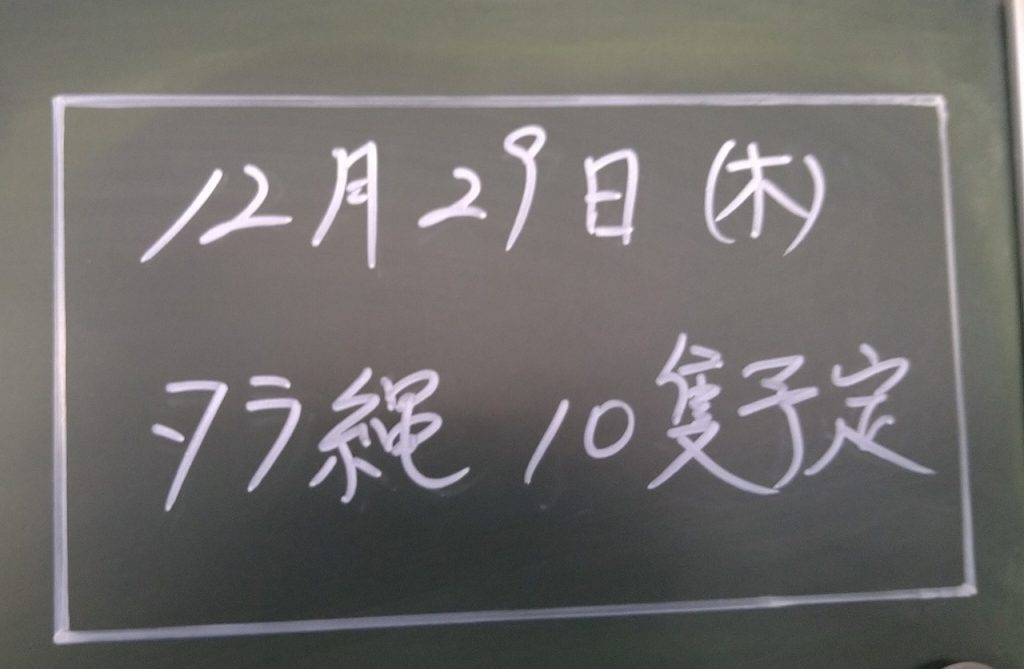 12月29日(木)
タラ縄 10隻予定